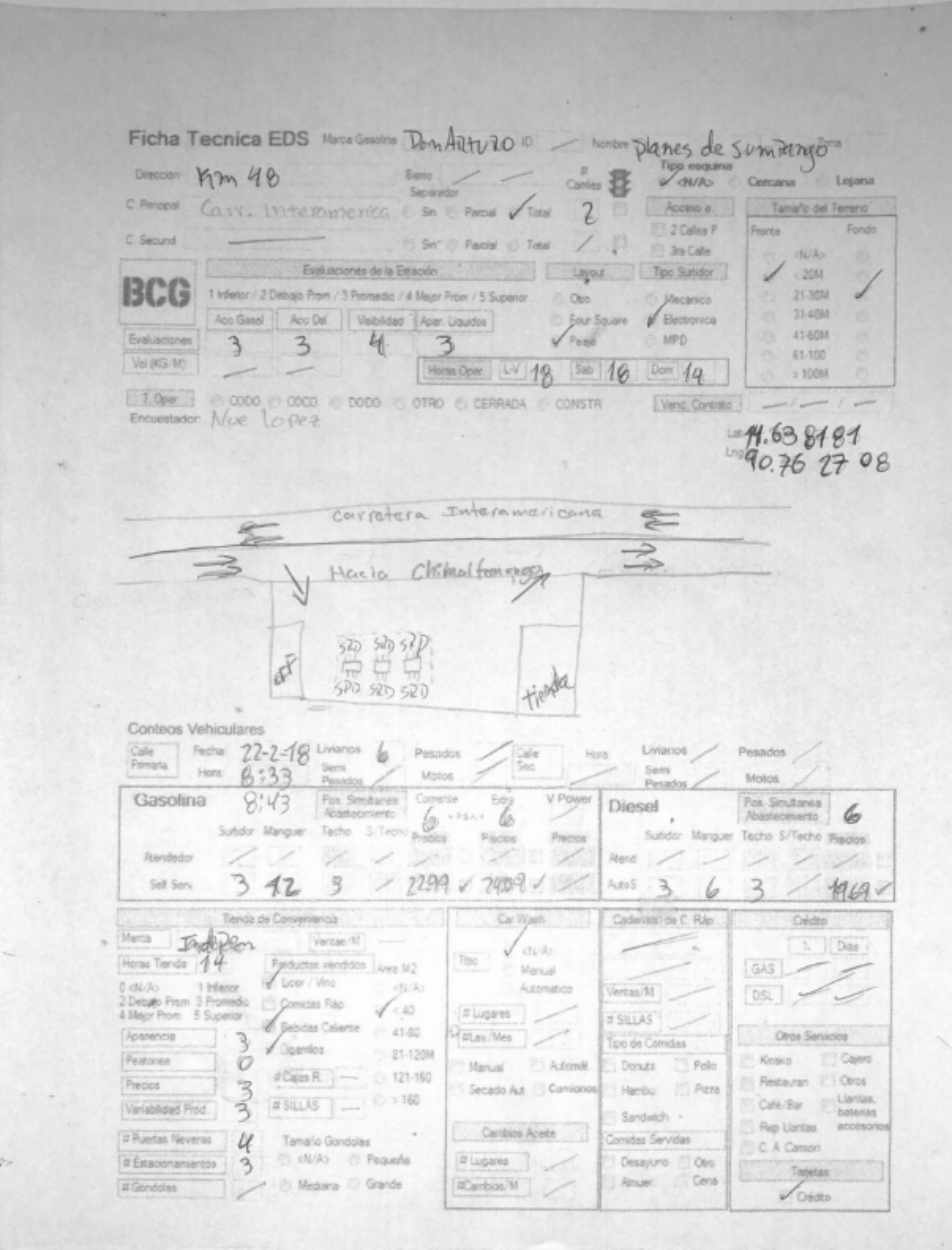 Ficha Tecnica EDS Marca Gasolina Don Arturo ID Nombre planes de sumpango
Direccion Km 48 Barrio # Carriles Tipo esquina <N/A> Cercana Lejana
Separador
C. Principal Carr. Interamerica Sin Parcial Total 2 Acceso a Tamaño del Terreno
2 Calles P Frente Fondo
C. Secund Sin Parcial Total 3ra Calle <N/A>
BCG Evaluaciones de la Estación Layout Tipo Surtidor < 20M
1 Inferior / 2 Debajo Prom / 3 Promedio / 4 Mejor Prom / 5 Superior Otro Mecanico 21-30M
Acc Gasol Acc Dsl Visibilidad Apar. Liquidos Four Square Electronico 31-40M
Evaluaciones 3 3 4 3 Peaje MPD 41-60M
61-100
Vol (KG/M) Horas Oper L-V 18 Sab 18 Dom 14 > 100M
T. Oper CODO COCO DODO OTRO CERRADA CONSTR Venc. Contrato
Encuestador: Noe Lopez
Lat 14.638181
Lng 90.76 27 08
Carretera Interamericana
Hacia Chimaltenango
SRD SRD SRD
off
SRD SRD SRD
tienda
Conteos Vehiculares
Calle Primaria Fecha 22-2-18 Livianos 6 Pesados Calle Sec. Hora Livianos Pesados
Hora 8:33 Semi Pesados Motos Semi Pesados Motos
Gasolina 8:43 Pos. Simultanea Abastecimiento Corriente 6 Extra 6 V Power Diesel Pos. Simultanea Abastecimiento 6
Surtidor Manguer Techo S/Techo Precios Precios Precios Surtidor Manguer Techo S/Techo Precios
Atendedor Atend
Self Serv. 3 12 3 2299 2409 AutoS 3 6 3 1969
Tienda de Conveniencia Car Wash Cadena(s) de C. Ráp Crédito
Marca Indepen Ventas/M <N/A> % Dias
Horas Tienda 14 Productos vendidos Area M2 Tipo Manual GAS
0 <N/A> 1 Inferior Licor / Vino <N/A> Automatico Ventas/M DSL
2 Debajo Prom 3 Promedio Comidas Ráp < 40 # Lugares # SILLAS
4 Mejor Prom 5 Superior
Apariencia 3 Bebidas Caliente 41-80 # Lav./Mes Tipo de Comidas Otros Servicios
Peatones 0 Cigarrillos 81-120M Manual Automát. Donuts Pollo Kiosko Cajero
Precios 3 # Cajas R. 121-160 Secado Aut Camiones Hambu Pizza Restauran Otros
Variabilidad Prod. 3 # SILLAS > 160 Sandwich Café/Bar Llantas, baterias accesorios
# Puertas Neveras 4 Tamaño Gondolas Cambios Aceite Comidas Servidas Rep Llantas
# Estacionamientos 3 <N/A> Pequeña # Lugares Desayuno Otro C. A Camion
# Gondolas Mediana Grande #Cambios/M Almuer. Cena Tarjetas
Crédito